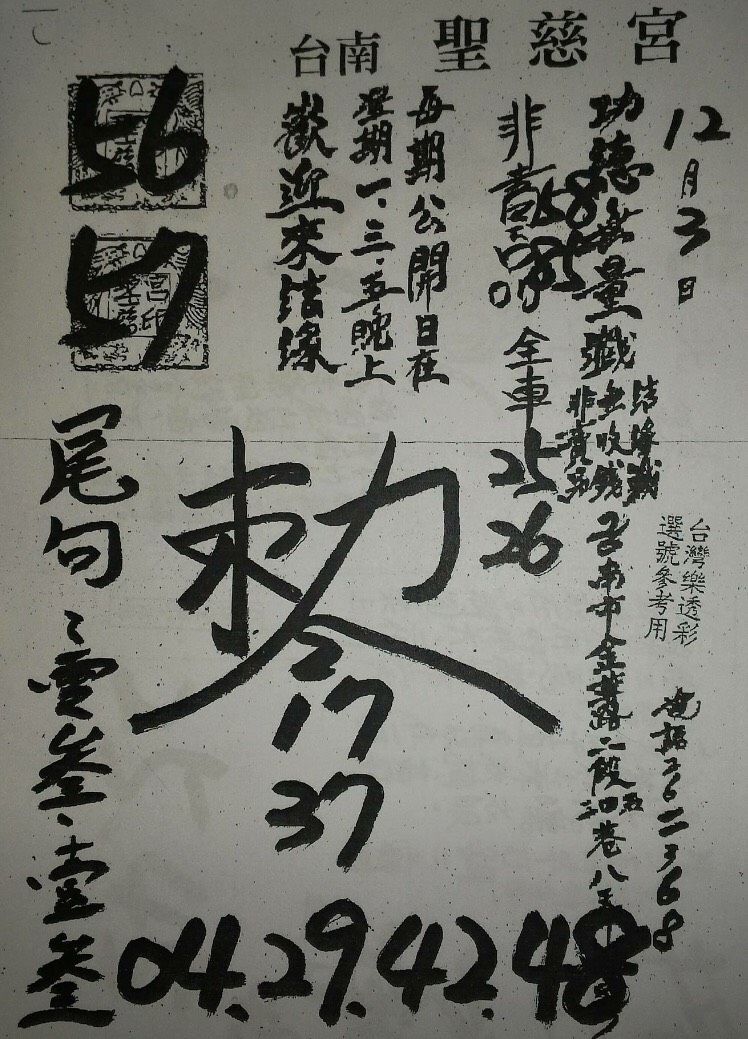 台南 聖慈宮
12月3日
功德無量
結緣
無收錢
非賣品
台灣樂透彩
選號參考用
電話 262368
台南市金華路二段
巷八
非賣品
58
85
全車
25
26
每期公開日在
星期一、三、五晚上
歡迎來結緣
56
57
勅令
17
37
尾句
零叁、壹叁
04.29.42.48